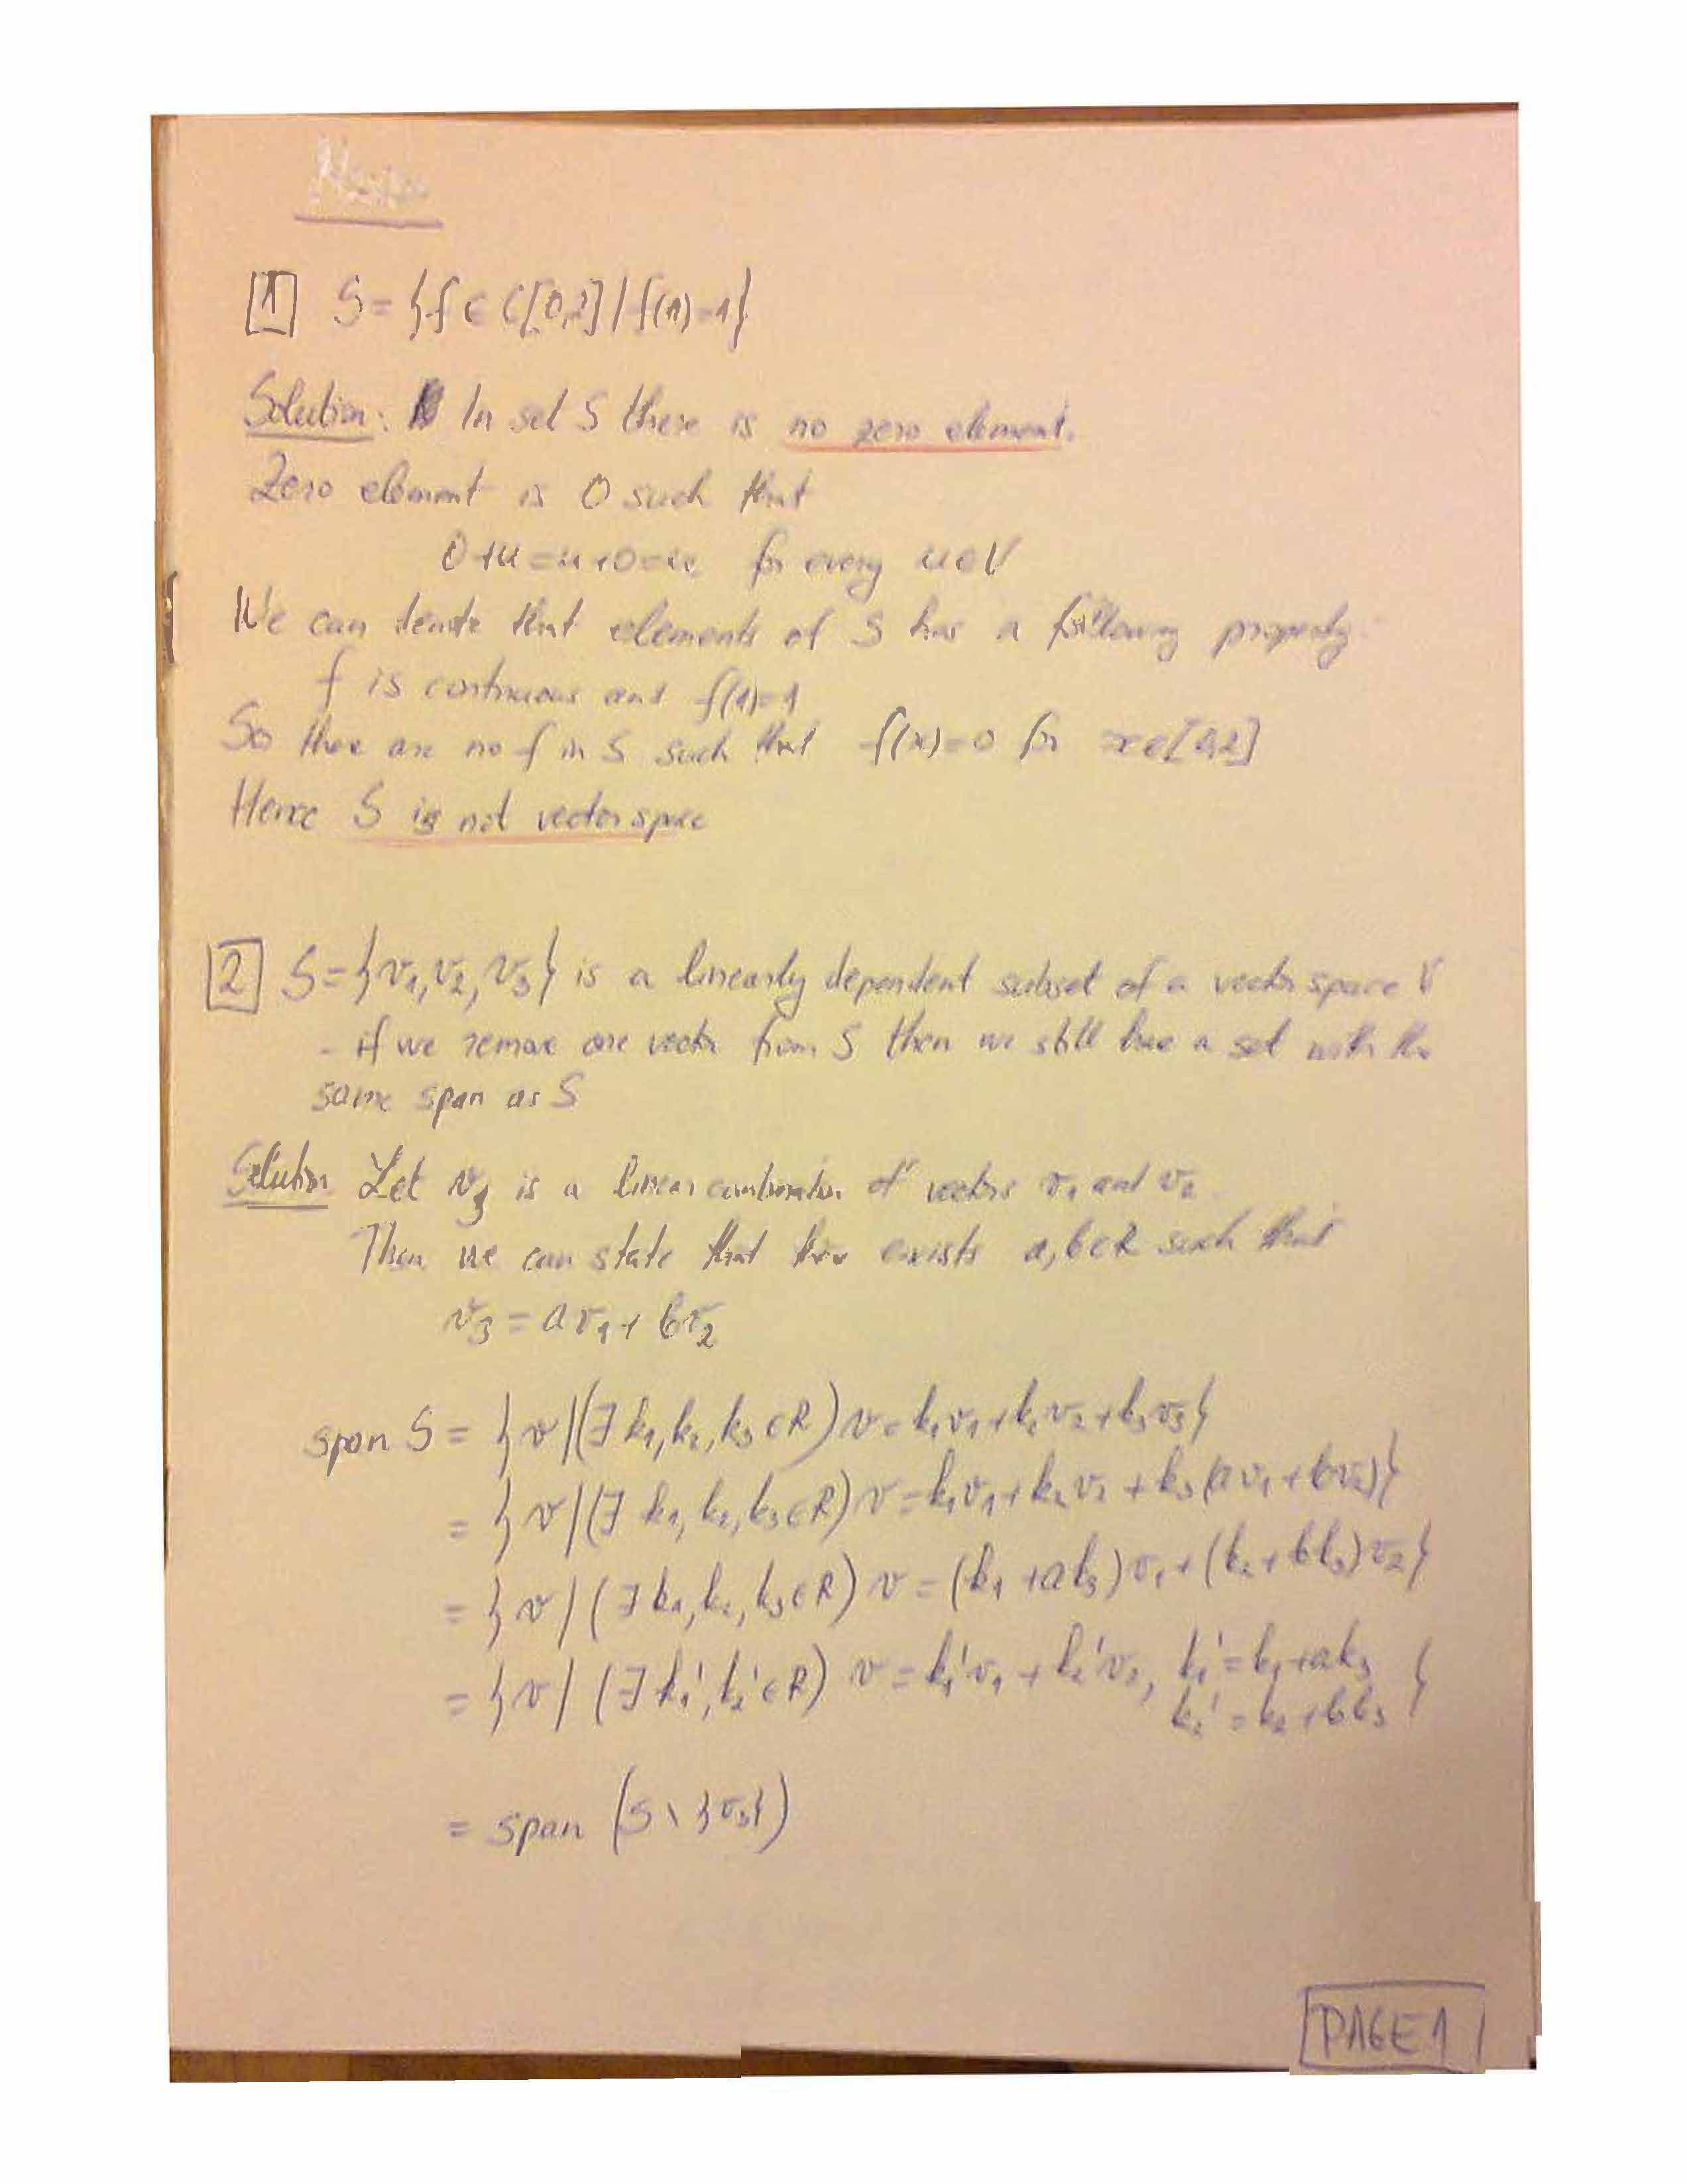 [1] S = {f ∈ C[0,2] | f(1)=1}
Solution: In set S there is no zero element.
Zero element is 0 such that
0+u = u+0 = u for every u∈V
We can denote that elements of S has a following property
f is continuous and f(1)=1
So there are no f in S such that f(x)=0 for x∈[0,2]
Hence S is not vector space
[2] S={v₁,v₂,v₃} is a linearly dependent subset of a vector space V
- if we remove one vector from S then we still have a set with the
same span as S
Solution Let v₃ is a linear combination of vectors v₁ and v₂
Then we can state that there exists a,b∈R such that
v₃ = av₁ + bv₂
span S = {v | (∃ k₁,k₂,k₃∈R) v=k₁v₁+k₂v₂+k₃v₃}
= {v | (∃ k₁,k₂,k₃∈R) v=k₁v₁+k₂v₂+k₃(av₁+bv₂)}
= {v | (∃ k₁,k₂,k₃∈R) v=(k₁+ak₃)v₁+(k₂+bk₃)v₂}
= {v | (∃ k₁',k₂'∈R) v=k₁'v₁+k₂'v₂, k₁'=k₁+ak₃
k₂'=k₂+bk₃ }
= span (S \ {v₃})
PAGE 1